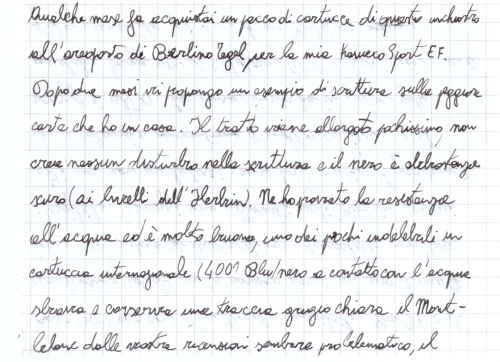 Qualche mese fa acquistai un pacco di cartucce di questo inchiostro
all'areoporto di Berlino Tegel, per la mia Kaweco Sport EF.
Dopo due mesi vi propongo un esempio di scrittura sulla peggiore
carta che ho in casa. Il tratto viene allargato pochissimo, non
crea nessun disturbo nella scrittura e il nero è abbastanza
scuro (ai livelli dell'Herbin). Ne ho provato la resistenza
all'acqua ed è molto buona, uno dei pochi indelebili in
cartuccia internazionale (4001 Blu/nero a contatto con l'acqua
sbava e conserva una traccia grigio chiara il Mont-
blanc dalle vostre recensioni sembra problematico, il